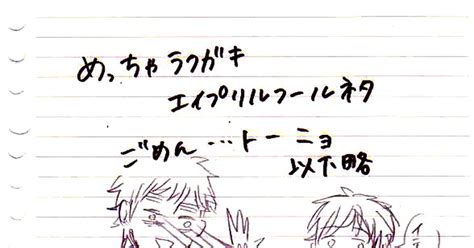 めっちゃラクガキ
エイプリルフールネタ
ごめん…トーニョ
以下略